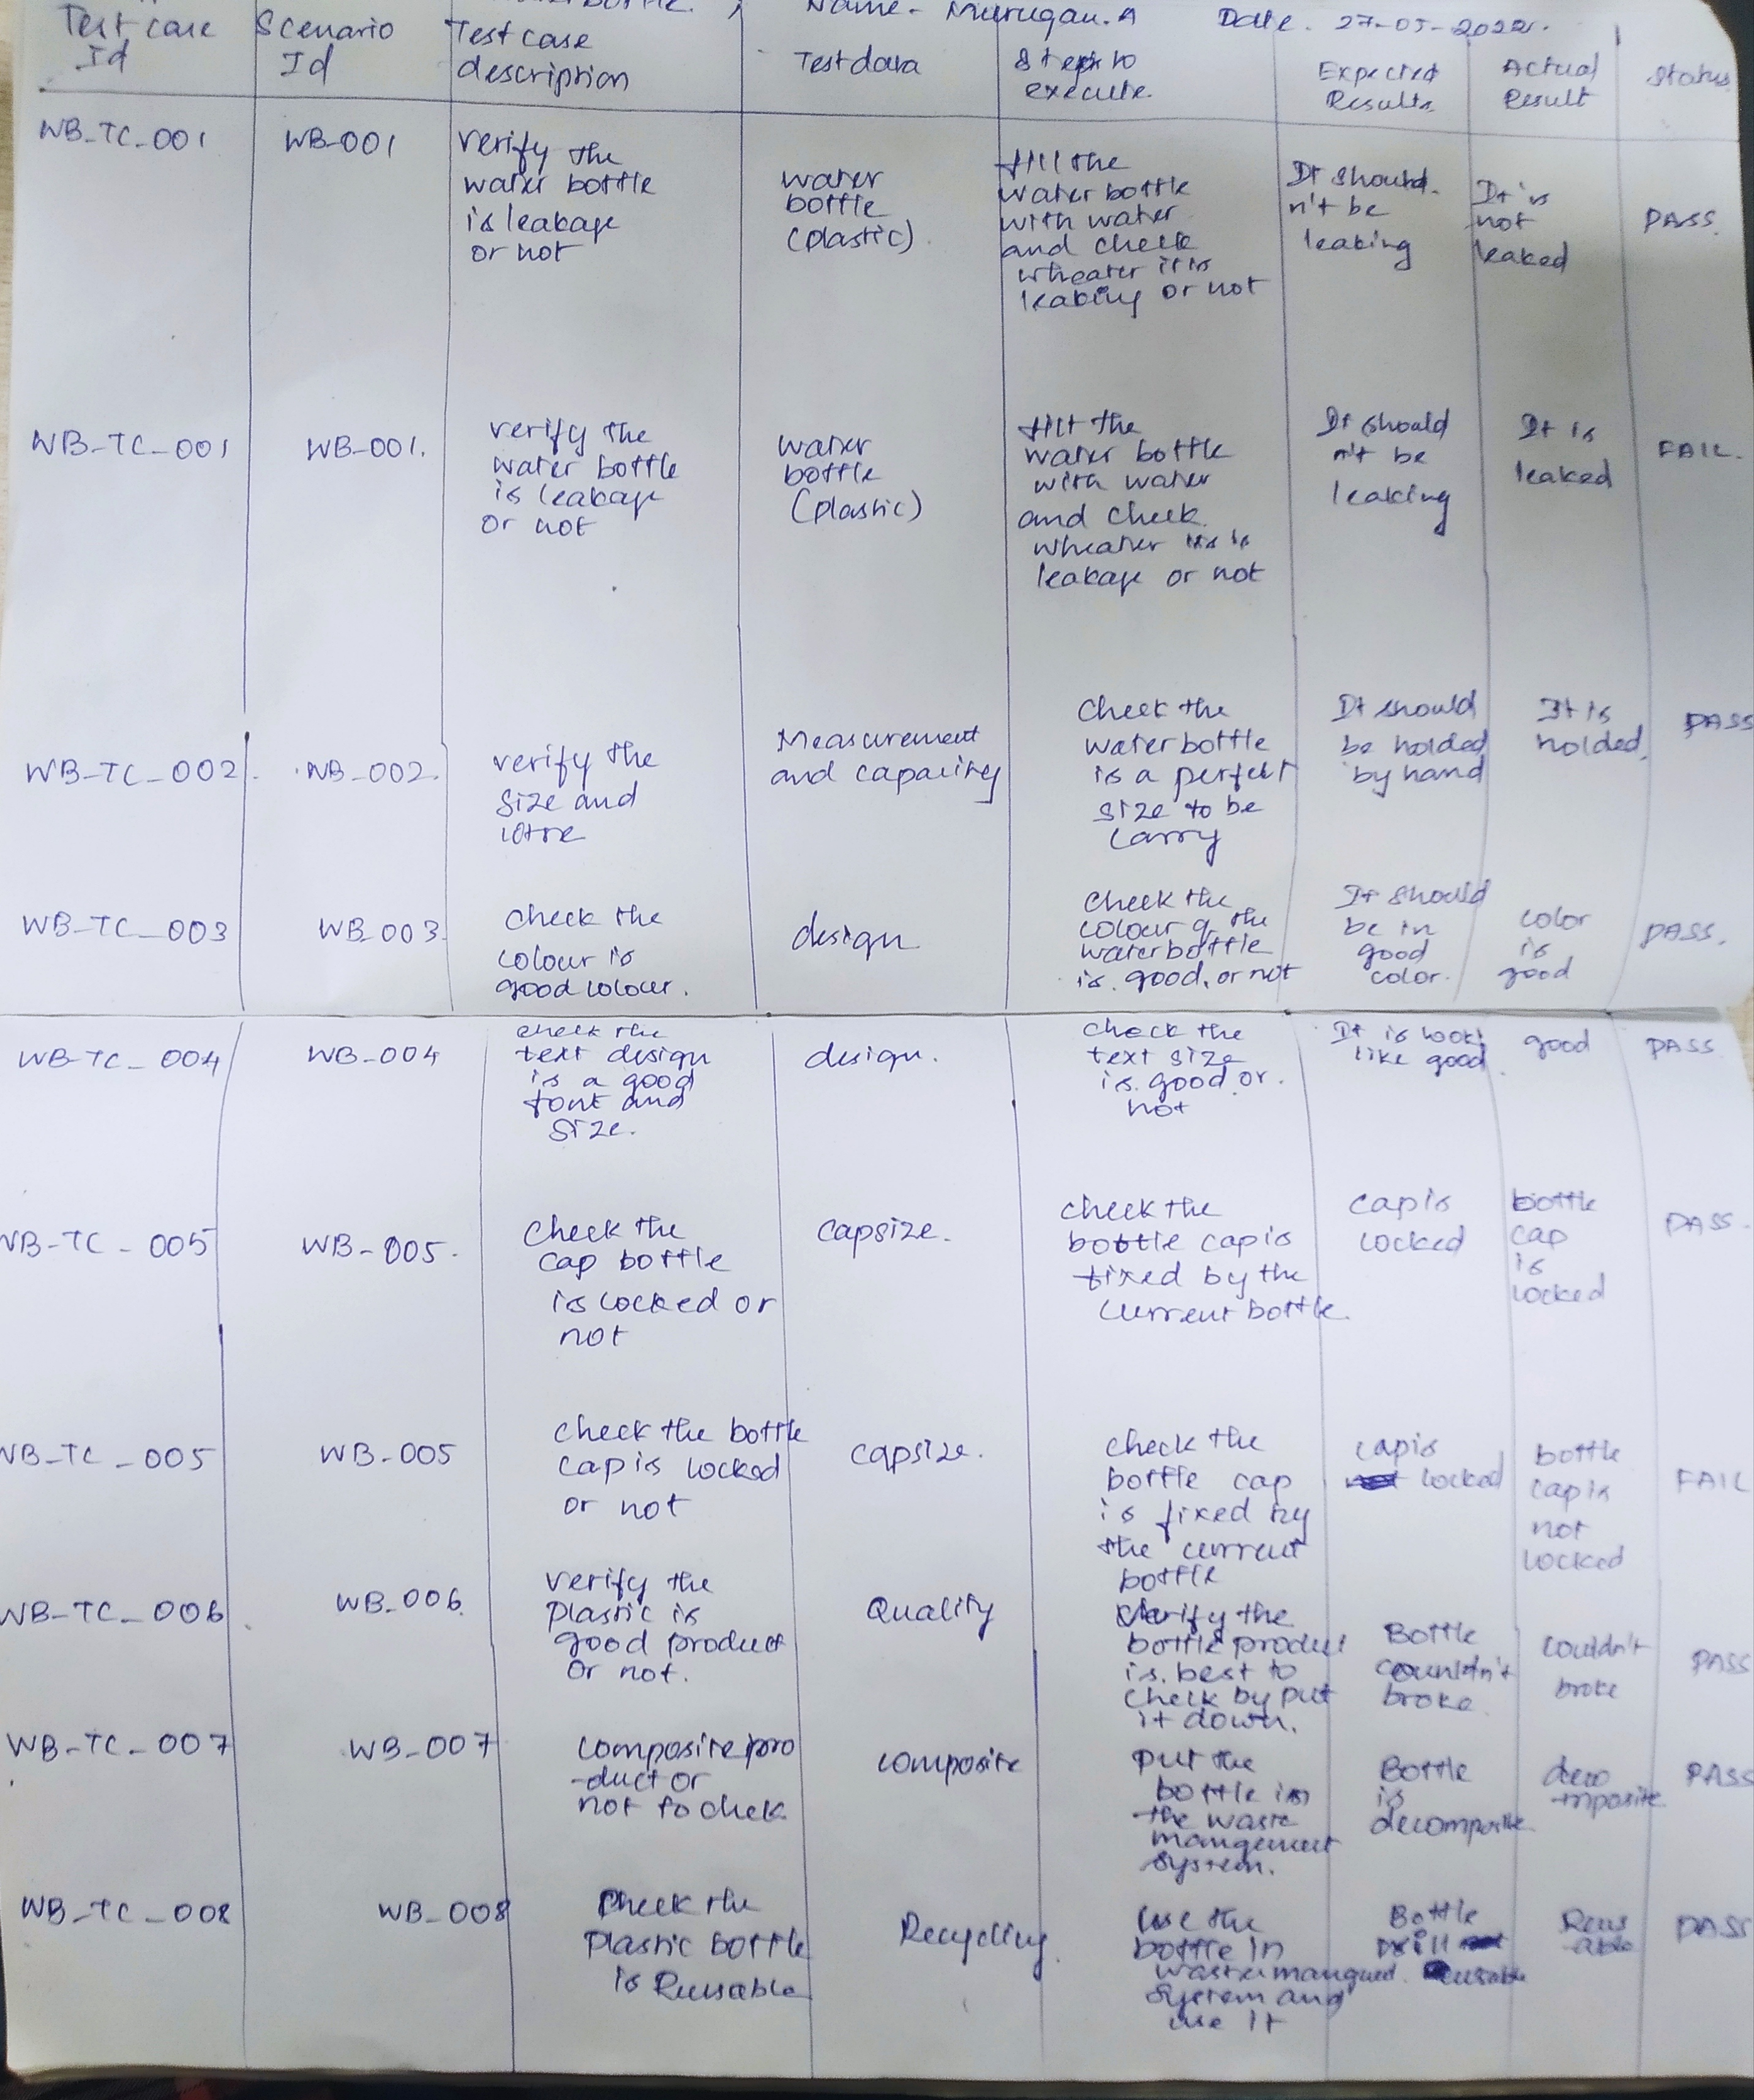 Water bottle. , Name - Murugan. A Date. 27-05-2022.
Test case Id
Scenario Id
Test case
description
Test data
Steps to
execute.
Expected
Results
Actual
Result
Status
WB-TC-001
WB-001
verify the
water bottle
is leakage
or not
water
bottle
(plastic).
fill the
water bottle
with water
and check
wheater it is
leaking or not
It should.
n't be
leaking
It is
not
leaked
PASS.
WB-TC_001
WB-001.
verify the
water bottle
is leakage
or not
water
bottle
(plastic)
fill the
water bottle
with water
and check.
wheater is
leakage or not
It should
n't be
leaking
It is
leaked
FAIL.
WB-TC_002.
WB_002.
verify the
size and
litre
Measurement
and capacity
Check the
water bottle
is a perfect
size to be
carry
It should
be holded
by hand
It is
holded.
PASS
WB-TC_003
WB_003.
check the
colour is
good colour.
design
check the
colour of the
water bottle
is. good. or not
It should
be in
good
color.
color
is
good
PASS.
WB-TC_004
WB-004
check the
text design
is a good
font and
size.
design.
check the
text size
is. good or.
not
It is look
like good.
good
PASS
WB-TC-005
WB-005.
Check the
cap bottle
is locked or
not
capsize.
check the
bottle cap is
fixed by the
current bottle.
cap is
locked
bottle
cap
is
locked
PASS.
WB_TC_005
WB-005
check the bottle
cap is locked
or not
capsize.
check the
bottle cap
is fixed by
the current
bottle
cap is
locked
bottle
cap is
not
locked
FAIL
WB-TC_006
WB_006.
verify the
plastic is
good product
or not.
Quality
verify the
bottle product
is. best to
check by put
it down.
Bottle
couldn't
broke
couldn't
broke
PASS
WB-TC-007
WB_007
composite pro
-duct or
not to chek.
composite
put the
bottle in
the waste
mangement
system.
Bottle
is
decomposite.
deco
-mposite.
PASS
WB_TC_008
WB_008
Check the
plastic bottle
is Reusable
Recycling.
use the
bottle in
waste mangued.
system and
use it
Bottle
still
reusable
Reus
-able
PASS